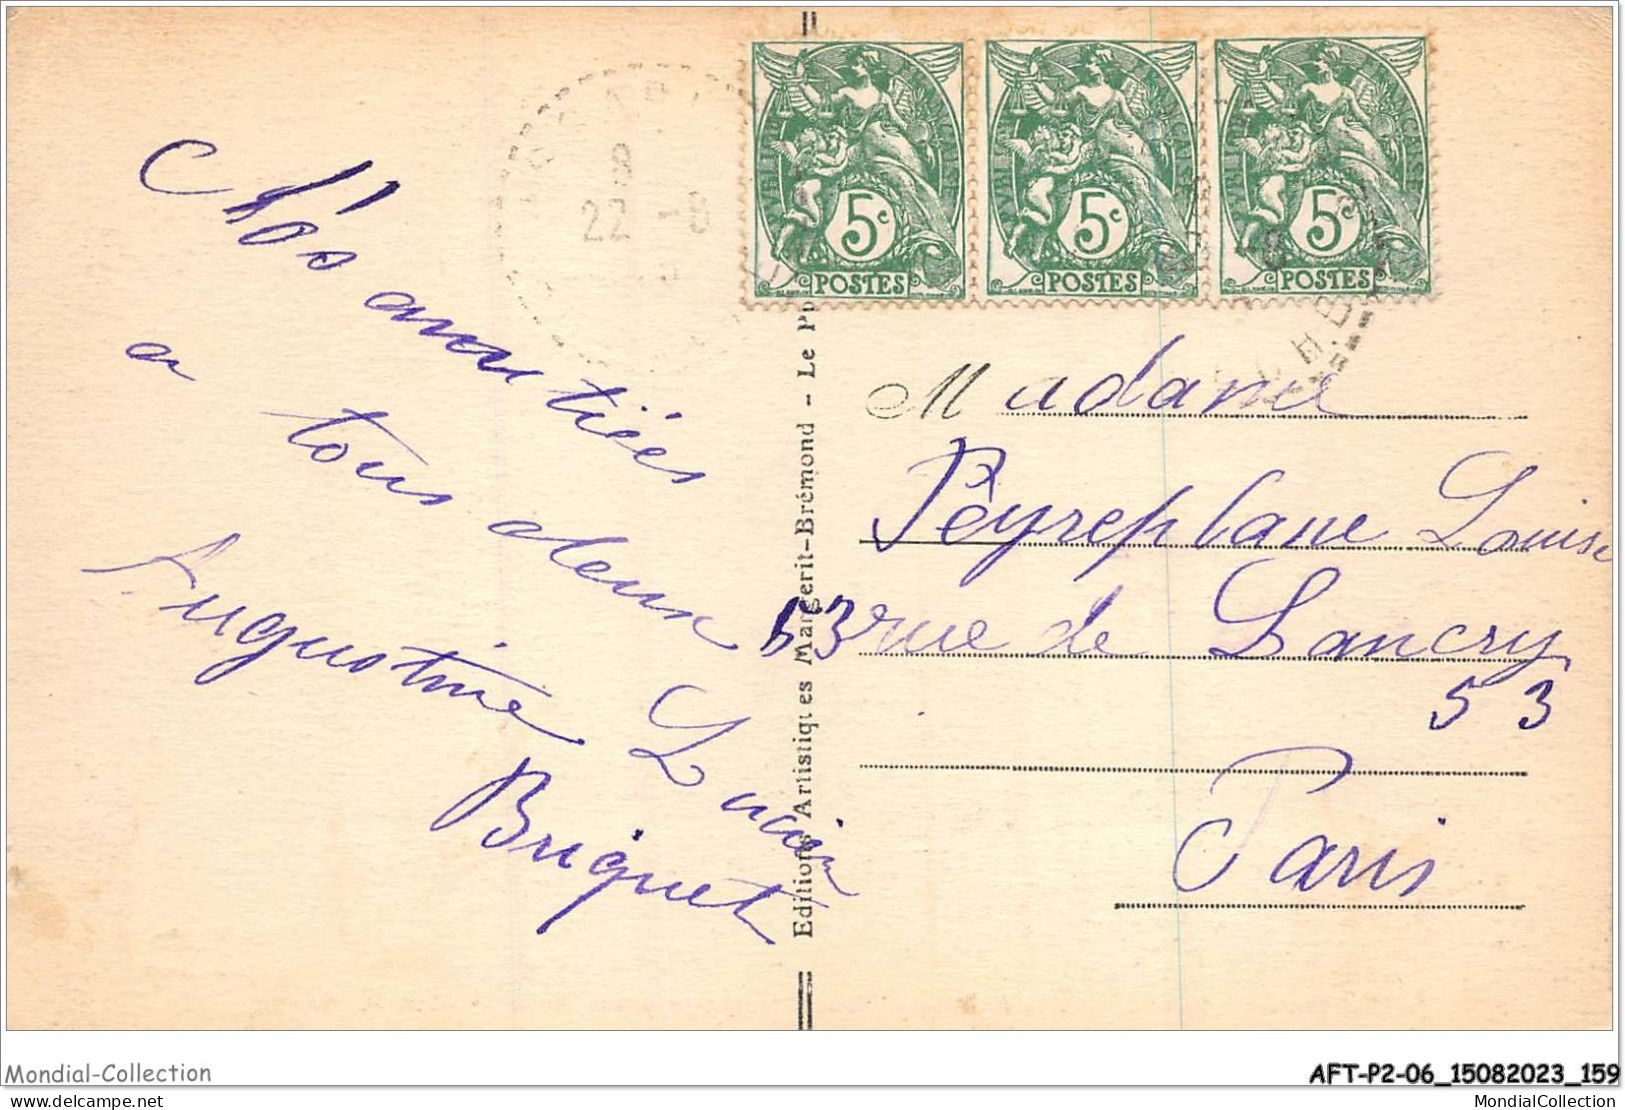 22 -8
5c
POSTES
5c
POSTES
5c
POSTES
amitiées
a tous deux
Augustine Lucien
Briquet
Editions Artistiques Margerit-Brémond - Le Pu
Madame
Pêyreplane Louise
53 rue de Lancry
53
Paris
Mondial-Collection
AFT-P2-06_15082023_159
delcampe.net
MondialCollection